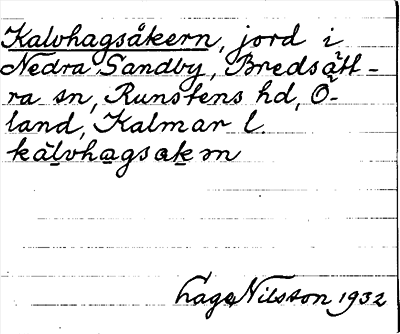 Kalvhagsåkern, jord i
Nedra Sandby, Bredsätt-
ra sn, Runstens hd, Ö-
land, Kalmar l.
kàlvhagsakæn
Nilsson 1932